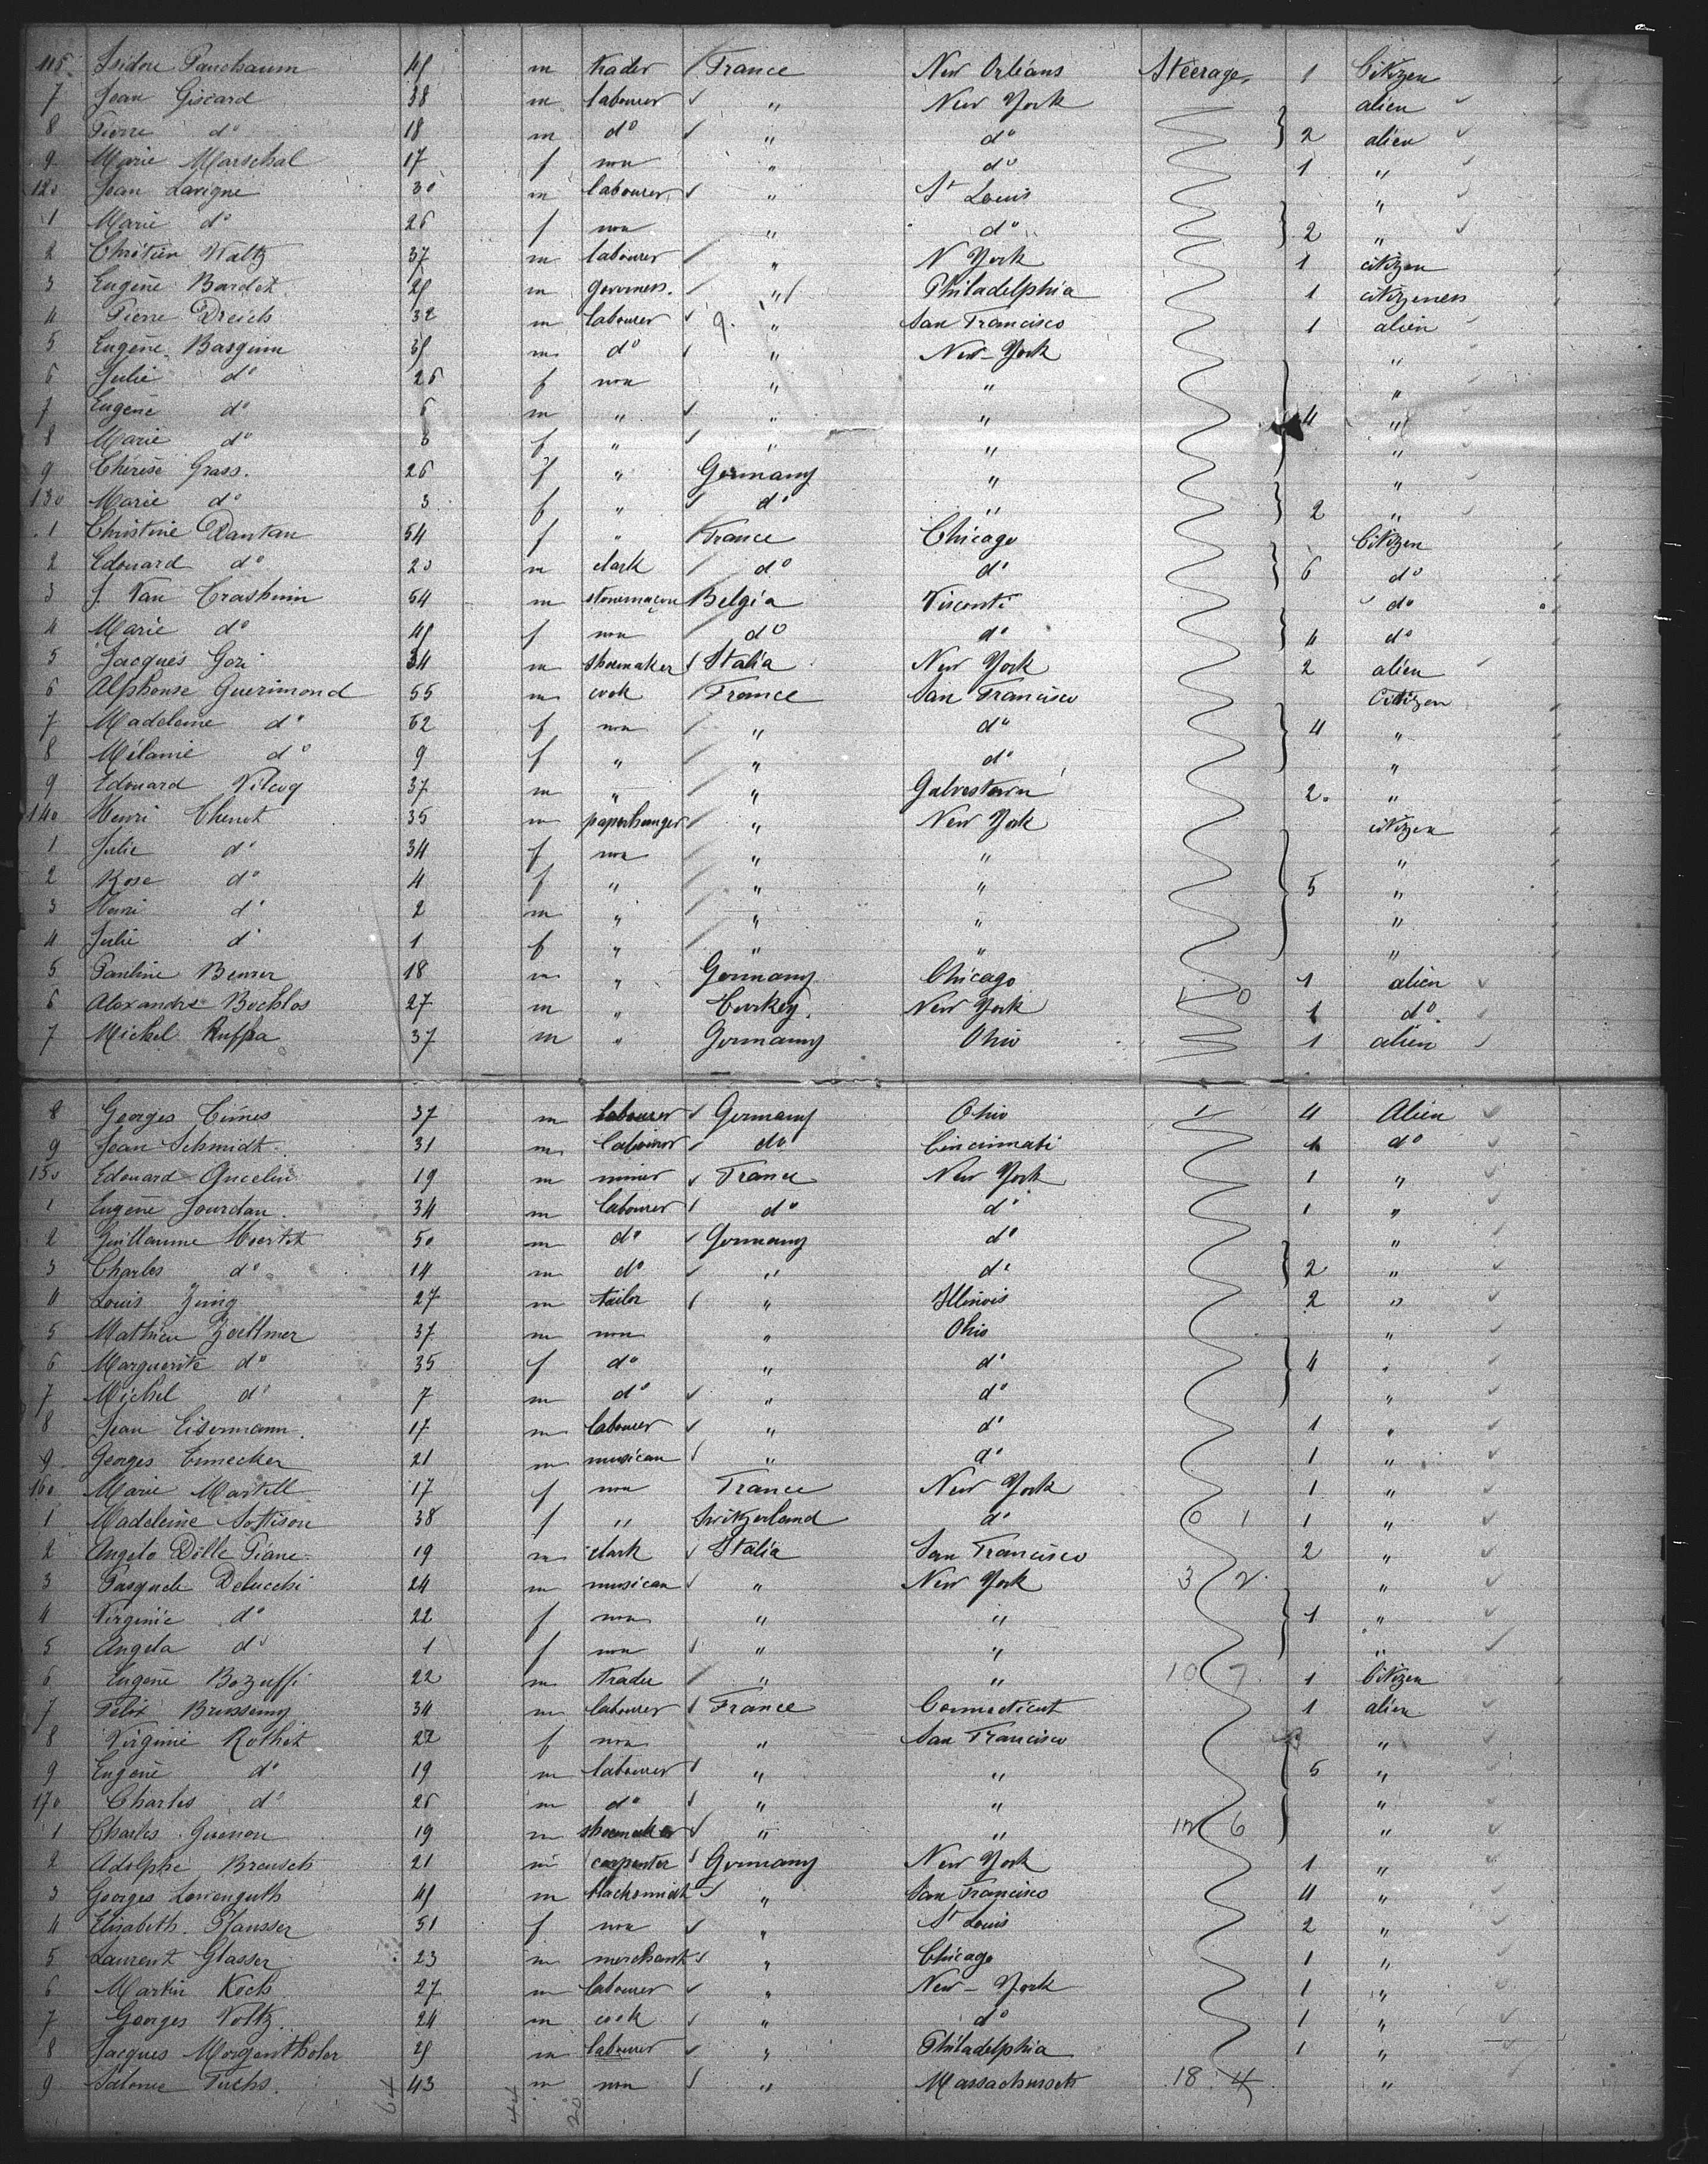 116 Isidore Pauchaum 45 m trader France New Orléans Steerage 1 Citizen
7 Jean Giscard 38 m labourer " New York alien
8 Pierre do 18 m do " do 2 alien
9 Marie Marschal 17 f non " do 1 "
120 Jean Lavigne 30 m labourer " St Louis "
1 Marie do 26 f non " do 2 "
2 Chrétien Waltz 37 m labourer " N York 1 citizen
3 Eugène Bardet 25 m governess " Philadelphia 1 citizeness
4 Pierre Dreich 32 m labourer " San Francisco 1 alien
5 Eugène Basquin 35 m do " New-York "
6 Julie do 26 f non " " "
7 Eugène do 6 m " " " 4 "
8 Marie do 3 f " " " "
9 Thérèse Grass. 26 f " Germany " "
130 Marie do 3 f " do " 2 "
1 Christine Dantan 54 f " France Chicago Citizen
2 Edouard do 20 m clark do do 6 do
3 J. Van 54 m stonemaçon Belgia Visconti do
4 Marie do 45 f non do do 4 do
5 Jacques Gozi 34 m shoemaker Italia New York 2 alien
6 Alphonse Guerimond 55 m cook France San Francisco Citizen
7 Madeleine do 62 f non " do 4 "
8 Mélanie do 9 f " " do "
9 Edouard Vilcoq 37 m " " Galvestown 2 "
140 Henri Chenot 35 m paperhanger " New York citizen
1 Julie do 34 f non " " "
2 Rose do 4 f " " " 5 "
3 Henri do 2 m " " " "
4 Julie do 1 f " " " "
5 Pauline Beurer 18 m " Germany Chicago 1 alien
6 Alexandre Bochlos 27 m " Turkey. New York 1 do
7 Michel Ruffra 37 m " Germany Ohio 1 alien
8 Georges Times 37 m labourer Germany Ohio 4 Alien
9 Jean Schmidt 31 m labourer do Cincinnati 1 do
150 Edouard Ancelin 19 m miner France New York 1 "
1 Eugène Jourdan. 34 m labourer do do 1 "
2 Guillaume Hoertet 50 m do Germany do "
3 Charles do 14 m do " do 2 "
4 Louis Zinig 27 m tailor " Illinois 2 "
5 Mathieu Zoellmer 37 m non " Ohio "
6 Marguerite do 35 f do " do 4 "
7 Michel do 7 m do " do "
8 Jean Eisermann. 17 m labourer " do 1 "
9 Georges Ennecker 21 m musican " do 1 "
160 Marie Martell 17 f non France New York 1 "
1 Madeleine Sottison 38 f " Switzerland do 0 1 1 "
2 Angelo Delle Piane 19 m clark Italia San Francisco 2 "
3 Pasquale Delucchi 24 m musican " New York 3 2 "
4 Virginie do 22 f non " " 1 "
5 Angela do 1 f non " " "
6 Eugène Bozuffi 22 m trader " " 10 7 1 Citizen
7 Felix Brussemy 34 m labourer France Connecticut 1 alien
8 Virginie Rothit 22 f non " San Francisco "
9 Eugène do 19 m labourer " " 5 "
170 Charles do 26 m do " " "
1 Charles Guenon 19 m shoemaker " " 6 "
2 Adolphe Breusch 21 m carpenter Germany New York 1 "
3 Georges Lowenguth 45 m blacksmith " San Francisco 4 "
4 Elisabeth Pfausser 51 f non " St Louis 2 "
5 Laurent Glasser 23 m merchant " Chicago 1 "
6 Martin Koch 27 m labourer " New-York 1 "
7 Georges Voltz. 24 m cook " do 1 "
8 Jacques Morgenthaler 25 m labourer " Philadelphia 1 "
9 Salomé Fuchs. 43 m non " Massachussets 18 4 "
64 44 20